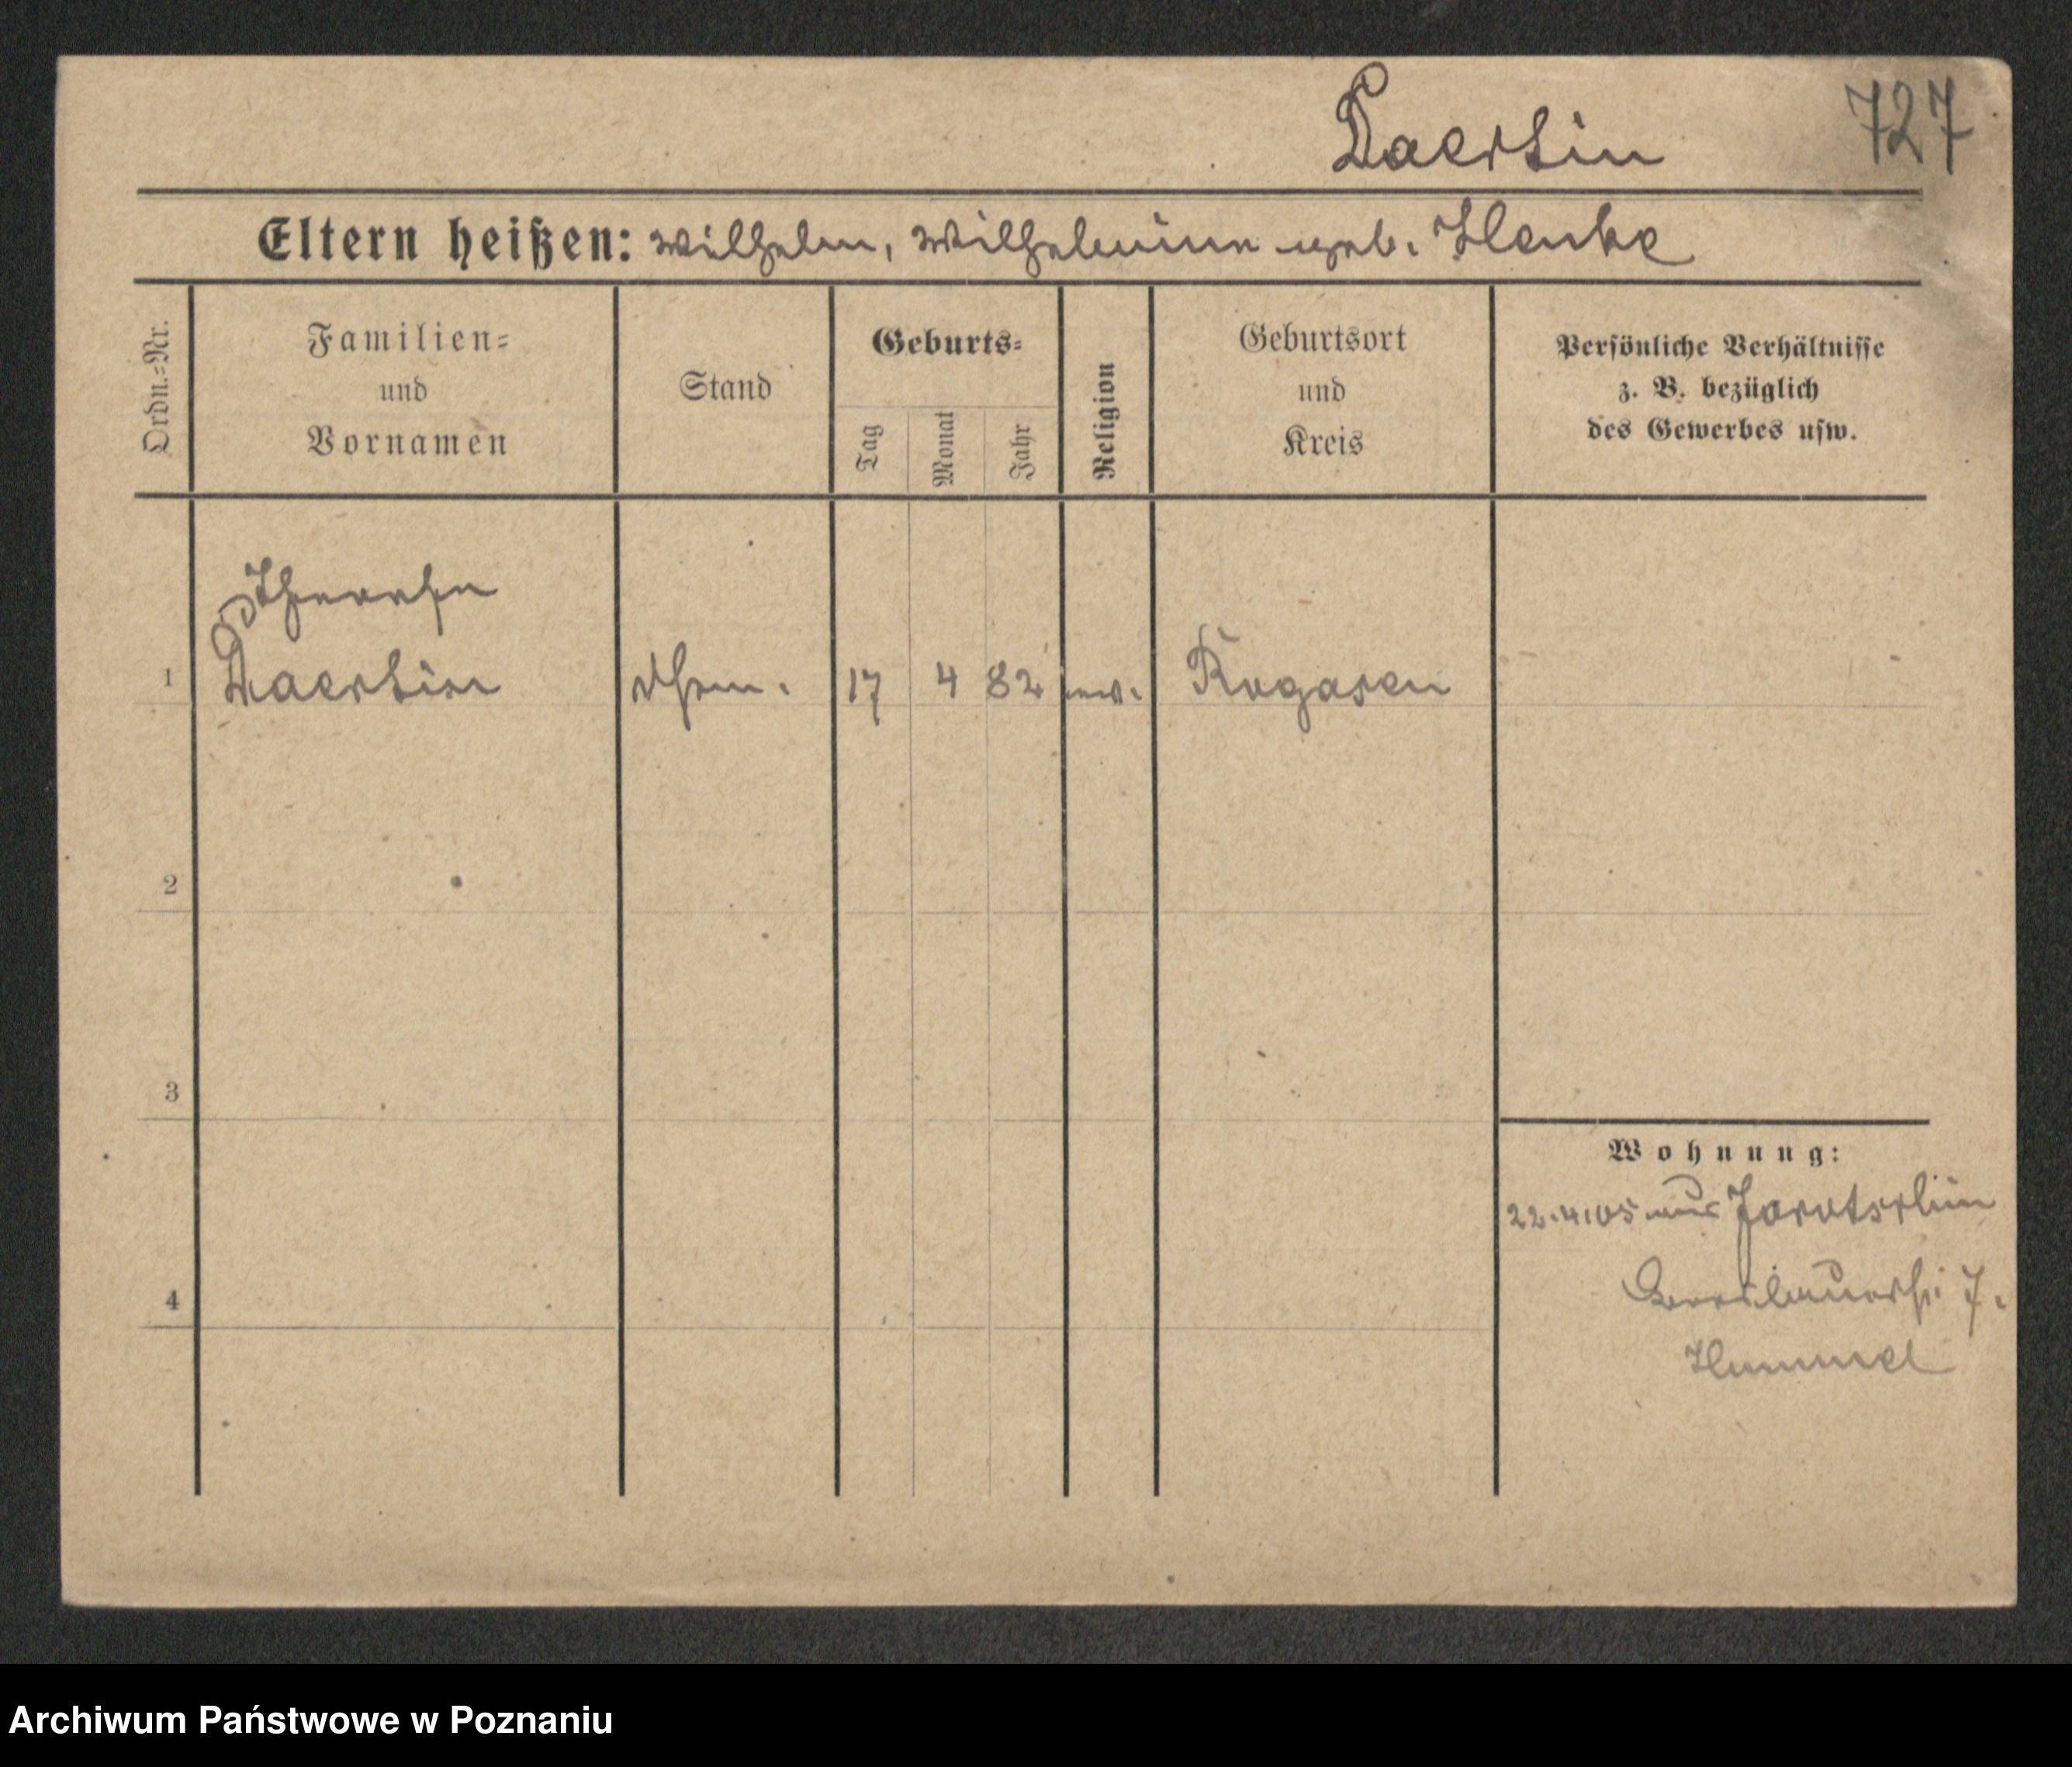 Daertin 727
Eltern heißen: Wilhelm, Wilhelmine geb. Henke
Ordn.=Nr.
Familien=
und
Vornamen
Stand
Geburts=
Tag
Monat
Jahr
Religion
Geburtsort
und
Kreis
Persönliche Verhältnisse
z. B. bezüglich
des Gewerbes usw.
Therese
1 Daertin 17 4 82 ev. Rogasen
2
3
4
Wohnung:
22.4.05 aus Jarotschin
7.
Hummel
Archiwum Państwowe w Poznaniu